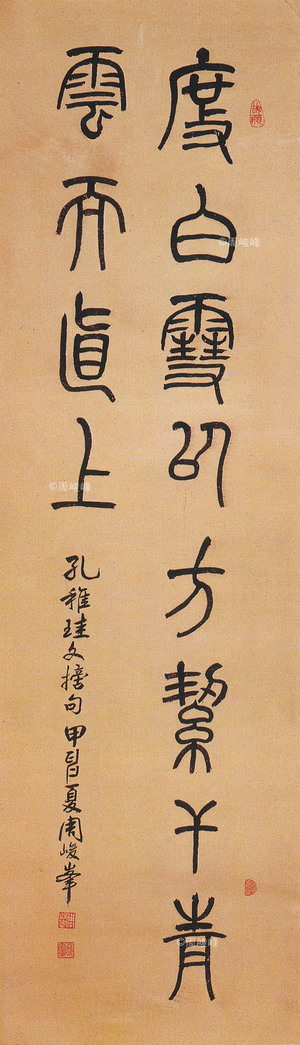 度白雪以方絜干青
雲而直上
孔稚珪文摘句甲申夏周峻峯
©周峻峰
©周峻峰
©周峻峰